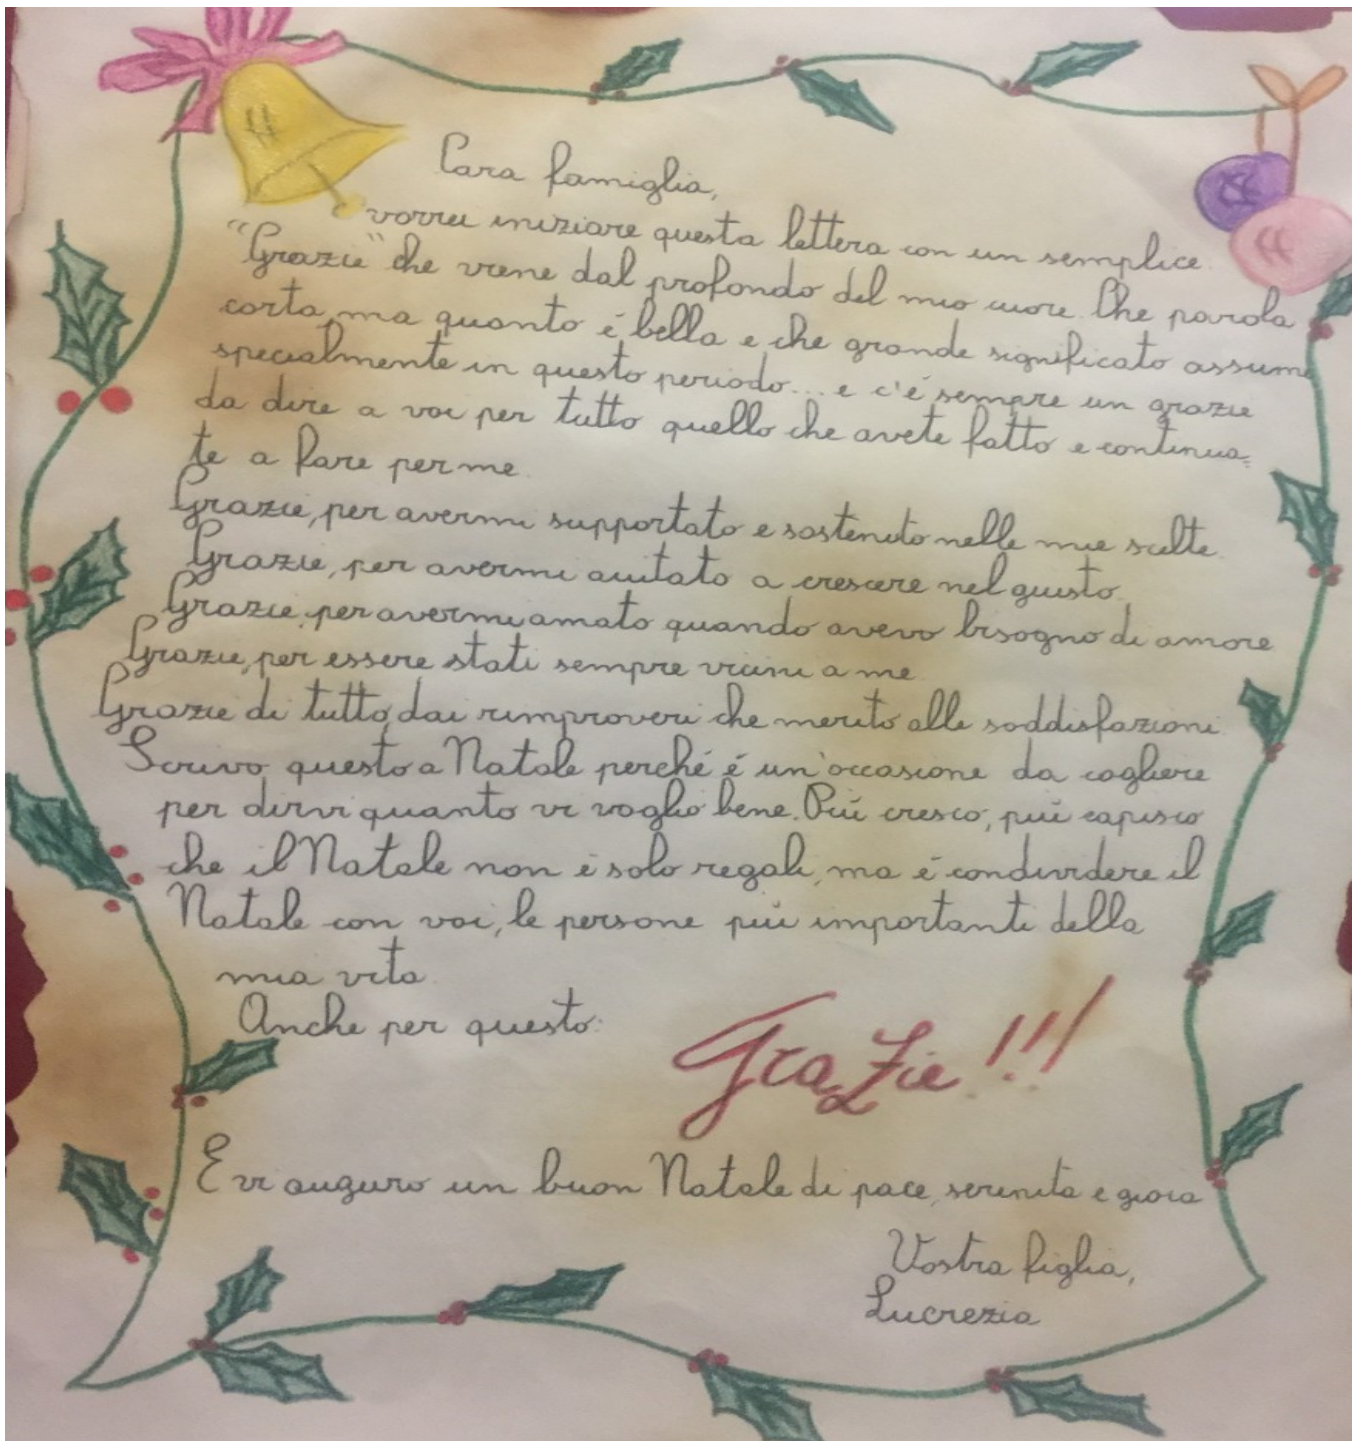 Cara famiglia,
vorrei iniziare questa lettera con un semplice
"Grazie" che viene dal profondo del mio cuore. Che parola
corta, ma quanto é bella e che grande significato assume
specialmente in questo periodo... e c'é sempre un grazie
da dire a voi per tutto quello che avete fatto e continua=
te a fare per me.
Grazie, per avermi supportato e sostenuto nelle mie scelte.
Grazie, per avermi aiutato a crescere nel giusto.
Grazie, per avermi amato quando avevo bisogno di amore.
Grazie, per essere stati sempre vicini a me.
Grazie di tutto, dai rimproveri che merito alle soddisfazioni.
Scrivo questo a Natale perché é un'occasione da cogliere
per dirvi quanto vi voglio bene. Piú cresco, piú capisco
che il Natale non é solo regali, ma é condividere il
Natale con voi, le persone piú importanti della
mia vita.
Anche per questo:
Grazie!!!
E vi auguro un buon Natale di pace, serenita e gioia
Vostra figlia,
Lucrezia